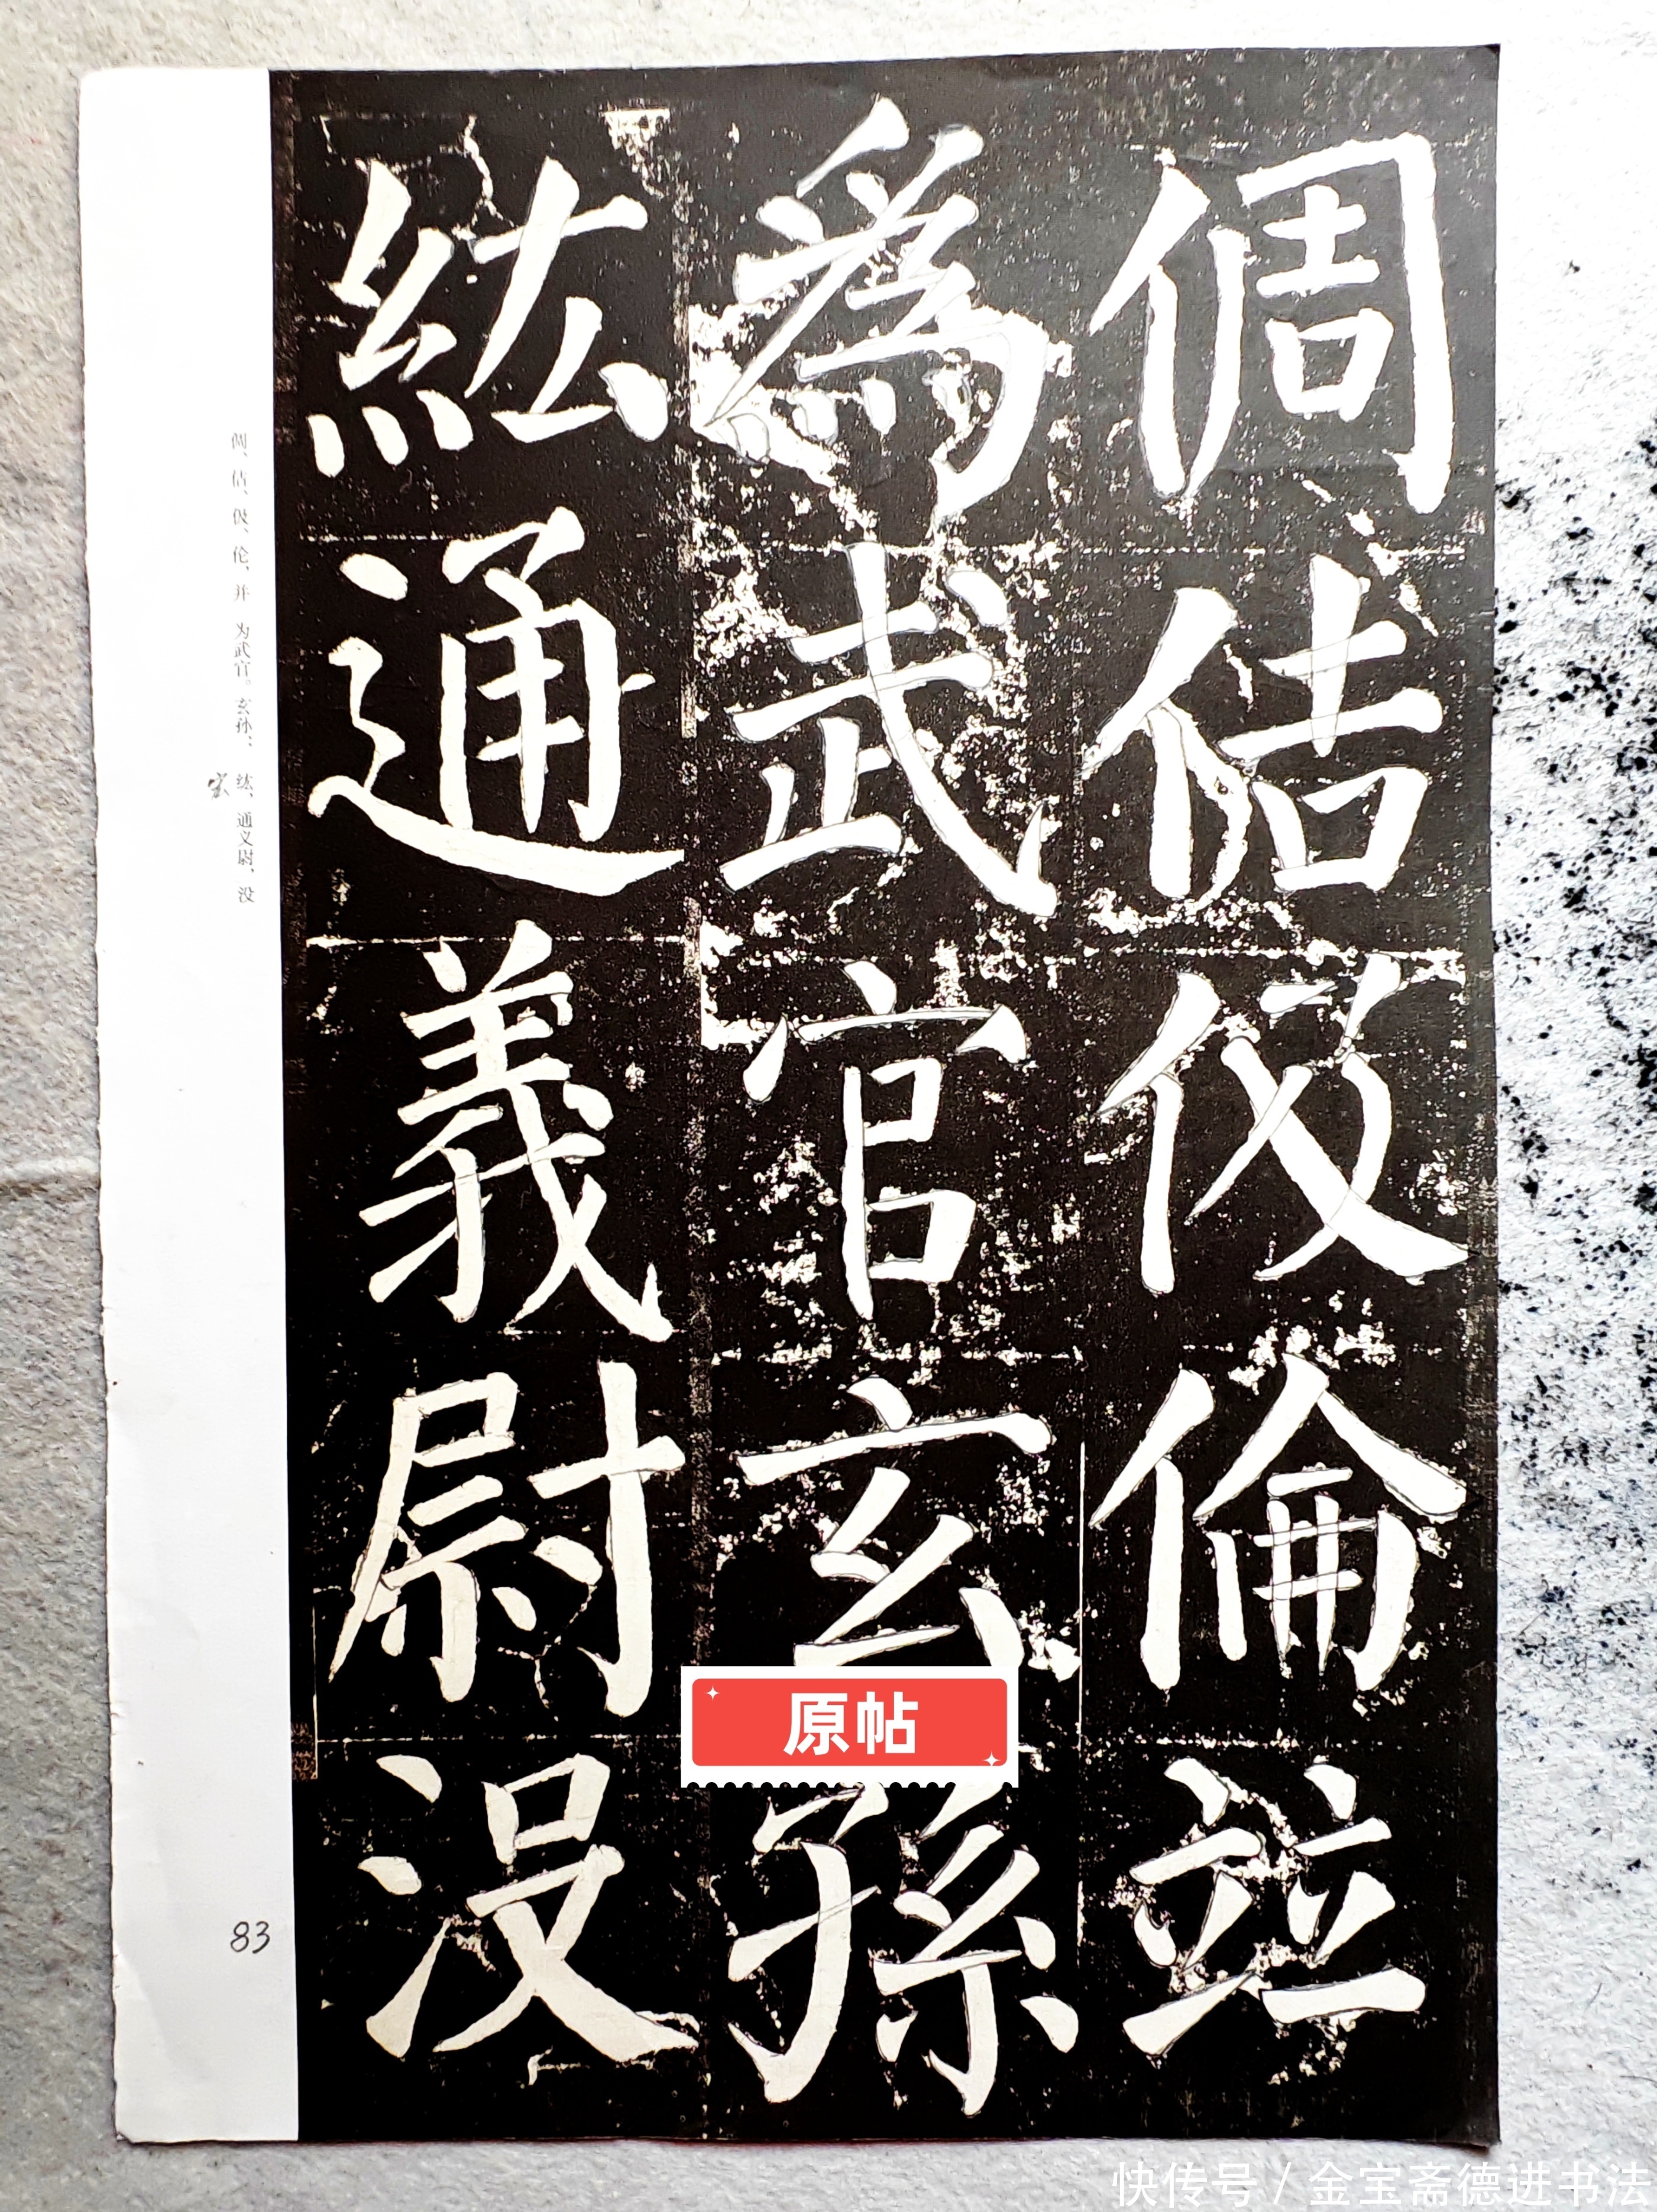 倜佶伋倫並
為武官玄孫
紘通義尉没
倜、佶、伋、伦、并 为武官。玄孙：纮、通义尉、没
宏
83
原帖
快传号 / 金宝斋德进书法